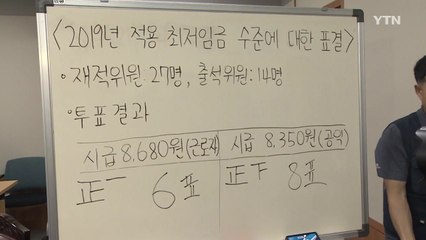 YTN
<2019년 적용 최저임금 수준에 대한 표결>
• 재적위원: 27명, 출석위원: 14명
• 투표결과
시급 8,680원(근로자) 시급 8,350원(공익)
正一 6표 正下 8표